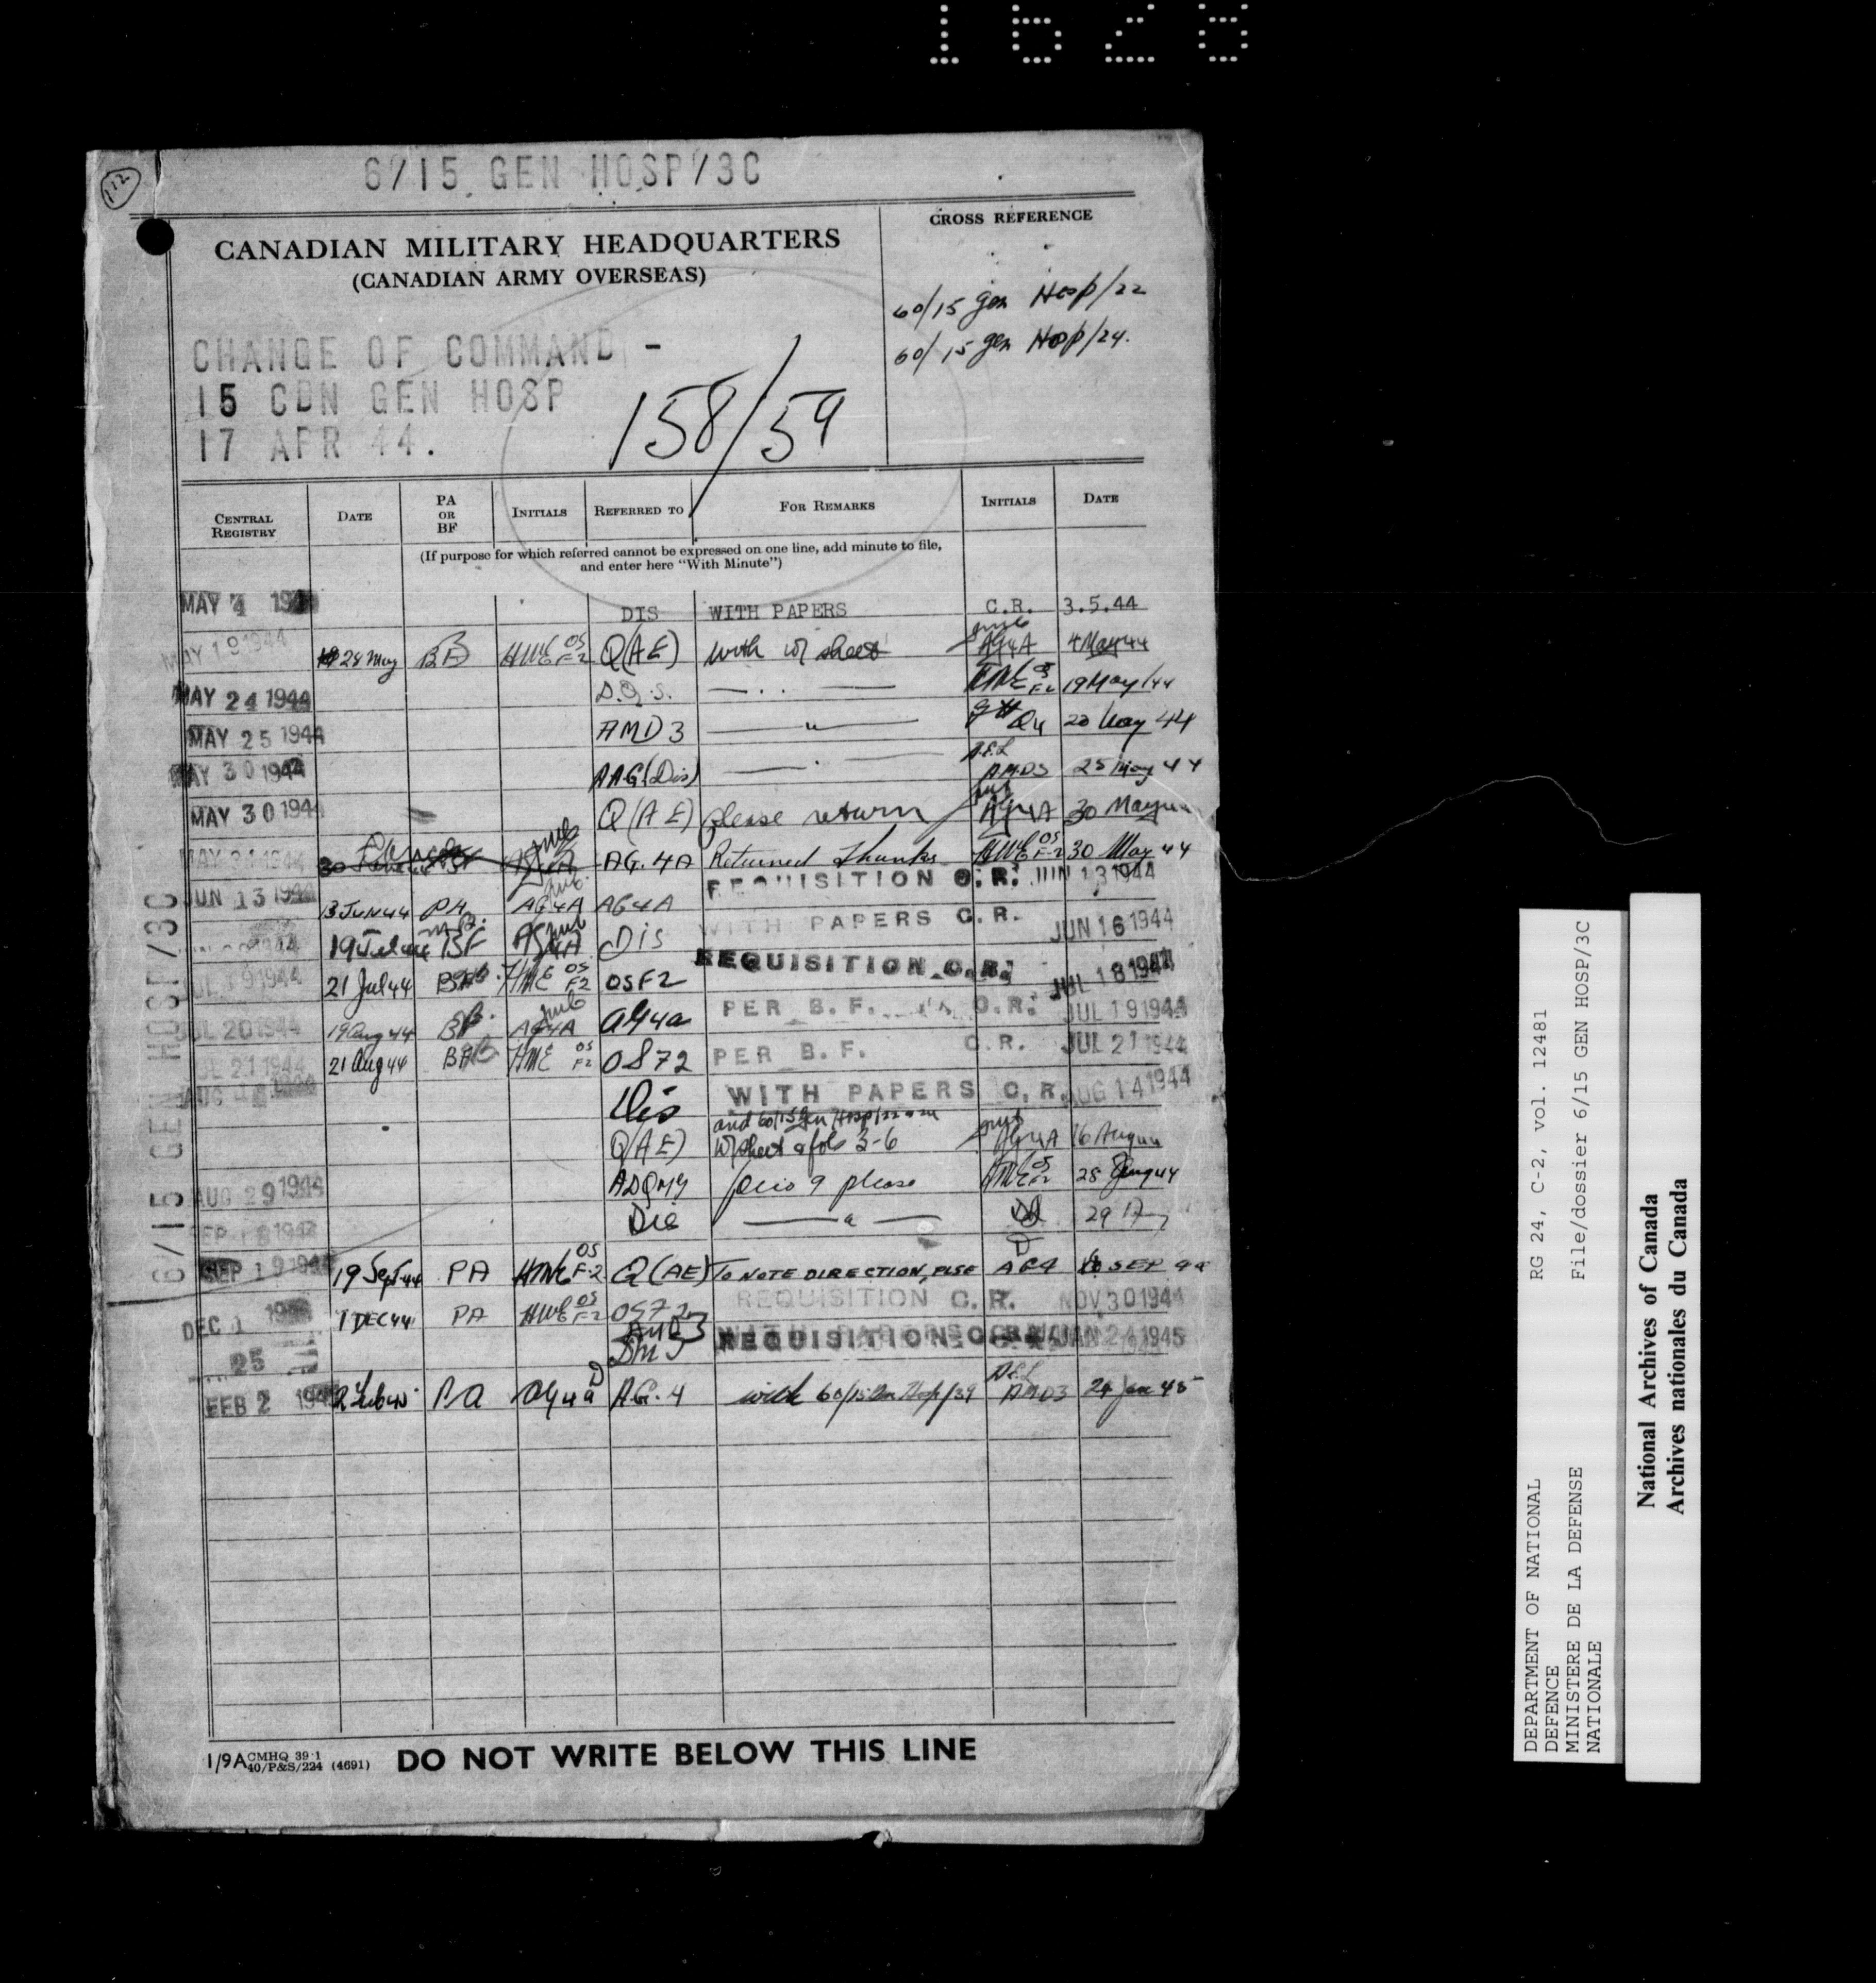 1628
112
6/15 GEN HOSP/3C
CANADIAN MILITARY HEADQUARTERS
(CANADIAN ARMY OVERSEAS)
CROSS REFERENCE
60/15 gen Hosp/22
60/15 gen Hosp/24.
CHANGE OF COMMAND -
15 CDN GEN HOSP
17 APR 44.
158/59
CENTRAL REGISTRY DATE PA OR BF INITIALS REFERRED TO FOR REMARKS INITIALS DATE
(If purpose for which referred cannot be expressed on one line, add minute to file,
and enter here "With Minute")
MAY 4 1944 DIS WITH PAPERS C.R. 3.5.44
MAY 19 1944 28 May BF OS F2 Q(AE) with w/ sheet AG4A 4 May 44
MAY 24 1944 D.Q.S. OS F2 19 May/44
MAY 25 1944 AMD 3 — " — Q4 20 May 44
MAY 30 1944 AAG(Dis) AMD3 25 May 44
MAY 30 1944 Q(AE) please return AG4A 30 May
MAY 31 1944 AG.4A Returned thanks OS F-2 30 May 44
JUN 13 1944 13 Jun 44 PA AG4A AG4A REQUISITION C.R. JUN 13 1944
19 BF AG4A Dis WITH PAPERS C.R. JUN 16 1944
JUL 19 1944 21 Jul 44 HME OS F2 OSF2 REQUISITION C.R. JUL 18 1944
JUL 20 1944 19 Aug 44 BF AG4A AG4a PER B.F. C.R. JUL 19 1944
JUL 21 1944 21 Aug 44 HME OS F2 OSF2 PER B.F. C.R. JUL 21 1944
AUG 1944 Dis WITH PAPERS C.R. AUG 14 1944
and 60/15 Gen Hosp/22
Q(AE) w/sheet & fols 3-6 AG4A 16 Aug
ADQMG folio 9 please OS F2 28 Aug 44
AUG 29 1944 Dis — " — 29
SEP 1944
SEP 19 1944 19 Sept 44 PA OS F-2 Q(AE) TO NOTE DIRECTION, PLSE AG4 SEP 44
DEC 1 1944 1 DEC 44 PA OS F-2 OSF2 REQUISITION C.R. NOV 30 1944
25 AMD 3 REQUISITION C.R. JAN 24 1945
FEB 2 1945 2 Feb 45 PA AG4a AG.4 with 60/15 Gen Hosp/39 AMD3 24 Jan 45
6/15 GEN HOSP/3C
1/9A CMHQ 39·1
40/P&S/224 (4691)
DO NOT WRITE BELOW THIS LINE
DEPARTMENT OF NATIONAL
DEFENCE
MINISTERE DE LA DEFENSE
NATIONALE
RG 24, C-2, vol. 12481
File/dossier 6/15 GEN HOSP/3C
National Archives of Canada
Archives nationales du Canada